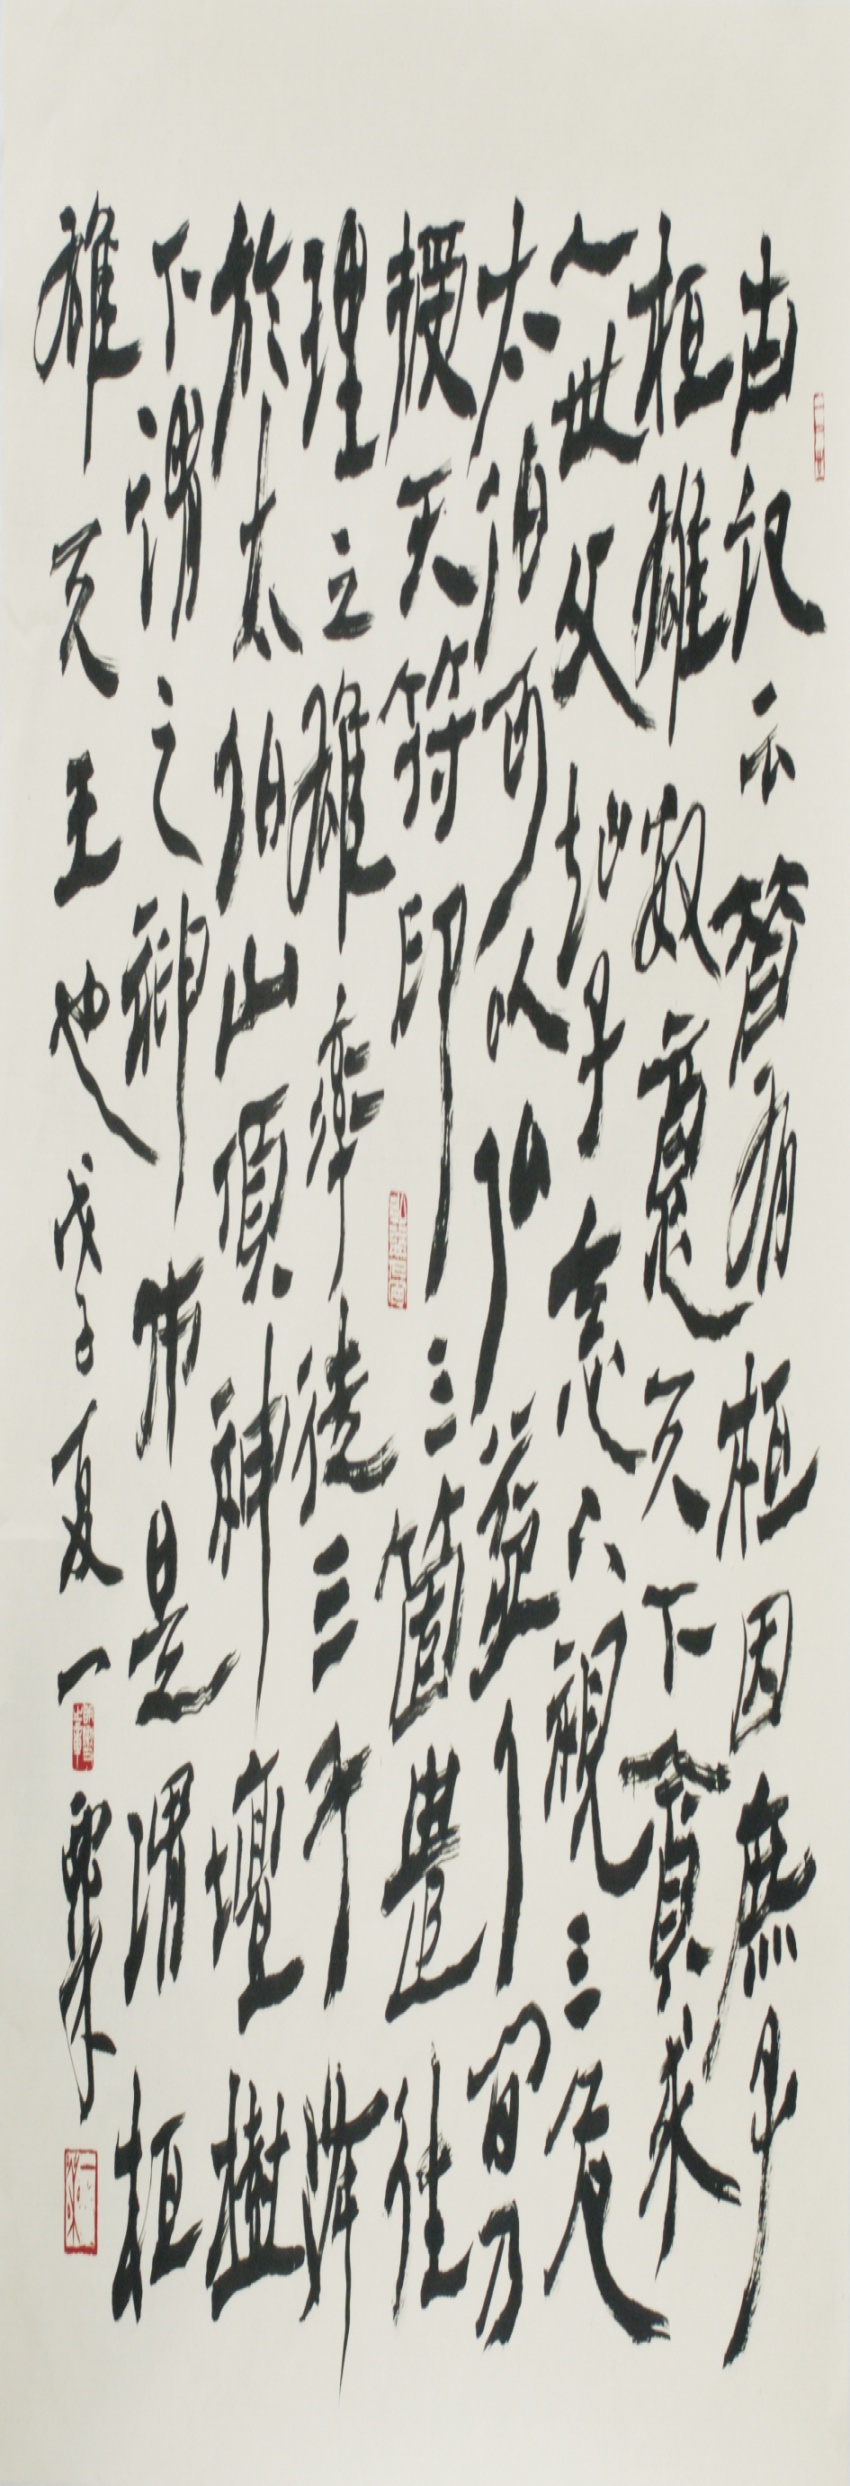 古記云昔有桓因庶子
桓雄數意天下貪求
人世父知子意下視三危
太伯可以弘益人間乃
授天符印三箇遣往
理之雄率徒三千降
於太伯山頂神壇樹
下謂之神市是謂桓
雄天王也戊子夏一